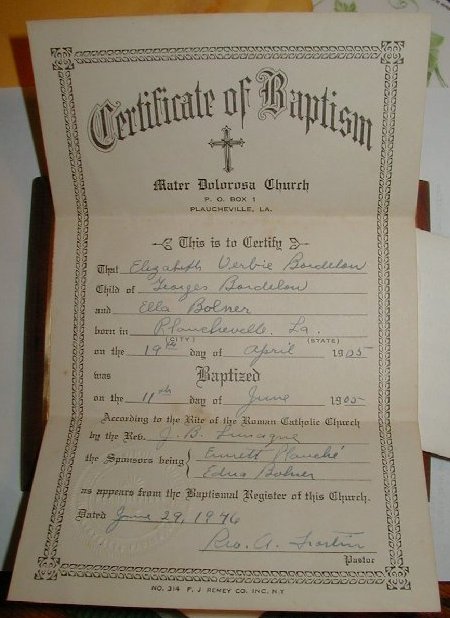 Certificate of Baptism
Mater Dolorosa Church
P. O. BOX 1
PLAUCHEVILLE, LA.
This is to Certify
That Elizabeth Verbie Bordelon
Child of Georges Bordelon
and Ella Bolner
born in Plaucheville, La.
(CITY) (STATE)
on the 19th day of April 1905
was Baptized
on the 11th day of June 1905
According to the Rite of the Roman Catholic Church
by the Rev. J. B.
the Sponsors being Emmett Planché
Edna Bolner
as appears from the Baptismal Register of this Church.
Dated June 29, 1946
Rev. A.
Pastor
NO. 314 F. J. REMEY CO. INC. N.Y